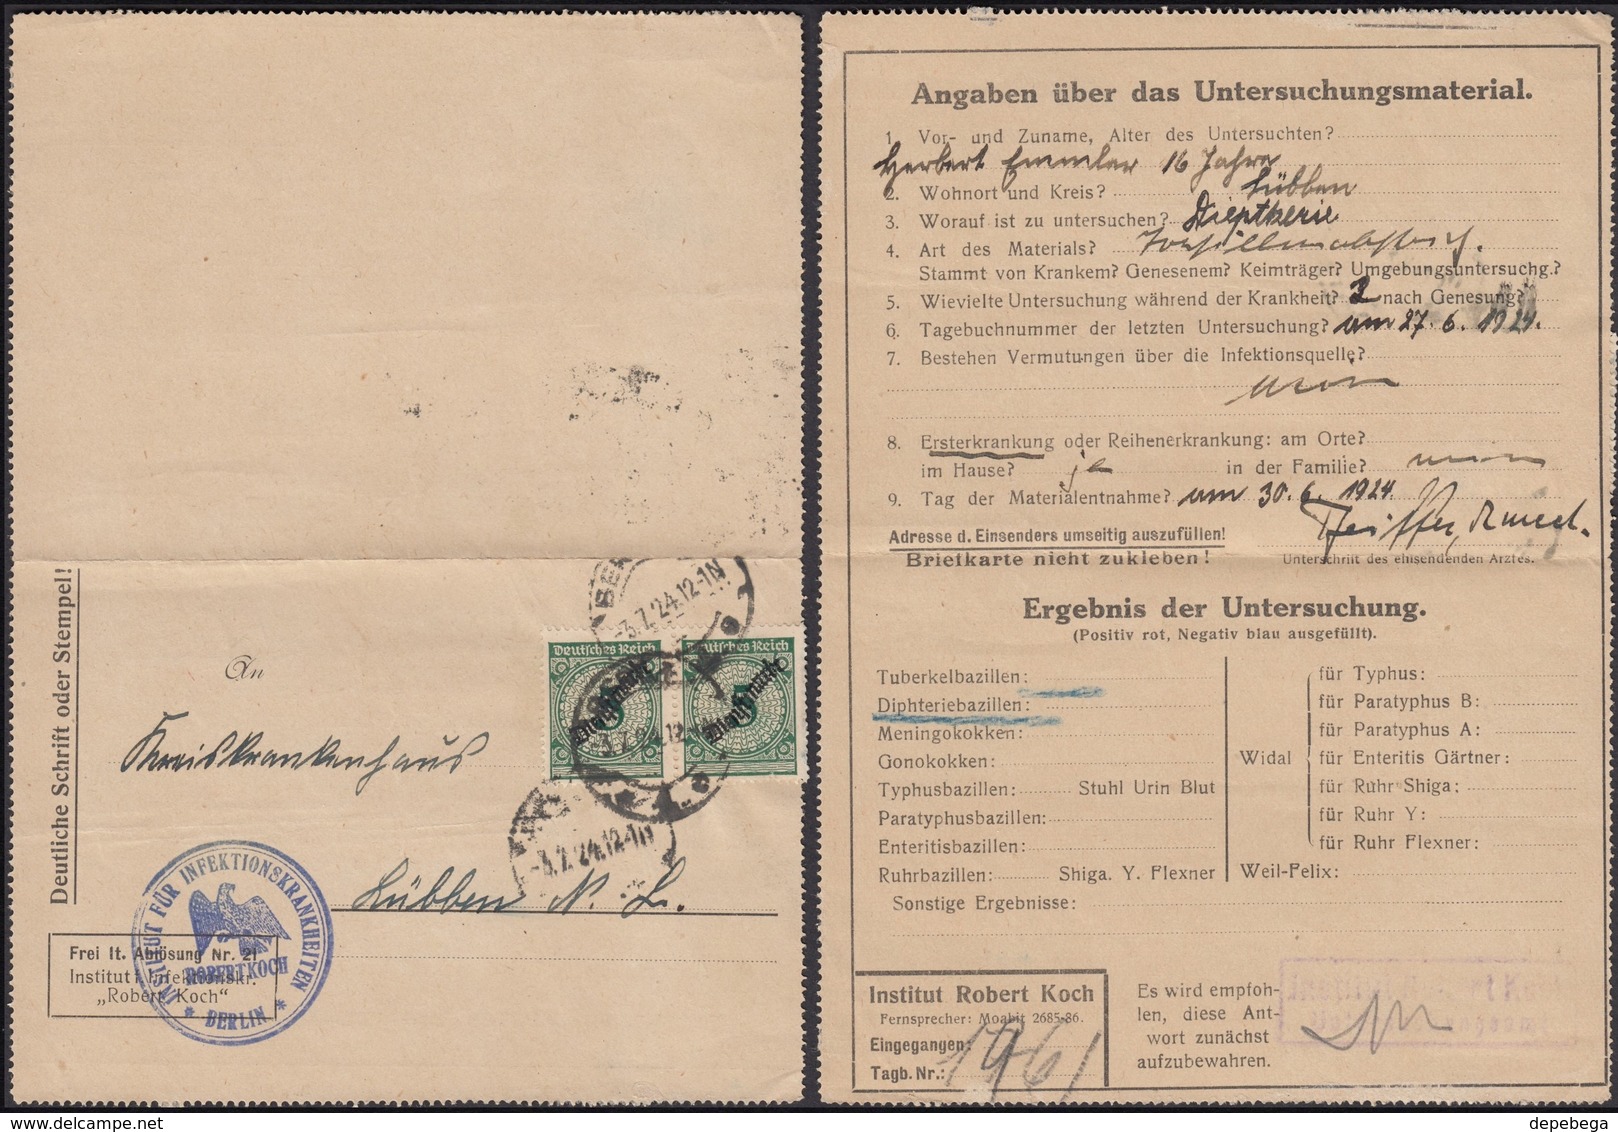 Deutliche Schrift oder Stempel!
An
Kreiskrankenhaus
Lübben N. L.
Deutsches Reich
Deutsches Reich
5
5
-3.7.24.12-1N
-3.7.24.12-1N
INSTITUT FÜR INFEKTIONSKRANKHEITEN
ROBERT KOCH
* BERLIN *
Frei lt. Ablösung Nr. 21
Institut f. Infektionskr.
„Robert Koch"
Angaben über das Untersuchungsmaterial.
1. Vor- und Zuname, Alter des Untersuchten?
Herbert Emmler 16 Jahre
2. Wohnort und Kreis? Lübben
3. Worauf ist zu untersuchen? Dieptherie
4. Art des Materials? Tonsillenabstrich.
Stammt von Krankem? Genesenem? Keimträger? Umgebungsuntersuchg.?
5. Wievielte Untersuchung während der Krankheit? 2 nach Genesung?
6. Tagebuchnummer der letzten Untersuchung? am 27. 6. 1924.
7. Bestehen Vermutungen über die Infektionsquelle?
nein
8. Ersterkrankung oder Reihenerkrankung: am Orte?
im Hause? ja in der Familie? nein
9. Tag der Materialentnahme? am 30. 6. 1924
Adresse d. Einsenders umseitig auszufüllen!
Briefkarte nicht zukleben!
Unterschrift des einsendenden Arztes.
Ergebnis der Untersuchung.
(Positiv rot, Negativ blau ausgefüllt).
Tuberkelbazillen:
Diphteriebazillen:
Meningokokken:
Gonokokken:
Typhusbazillen: Stuhl Urin Blut
Paratyphusbazillen:
Enteritisbazillen:
Ruhrbazillen: Shiga. Y. Flexner
Sonstige Ergebnisse:
Widal
für Typhus:
für Paratyphus B:
für Paratyphus A:
für Enteritis Gärtner:
für Ruhr Shiga:
für Ruhr Y:
für Ruhr Flexner:
Weil-Felix:
Institut Robert Koch
Fernsprecher: Moabit 2685-86.
Eingegangen:
Tagb. Nr.: 1961
Es wird empfoh-
len, diese Ant-
wort zunächst
aufzubewahren.
depebega